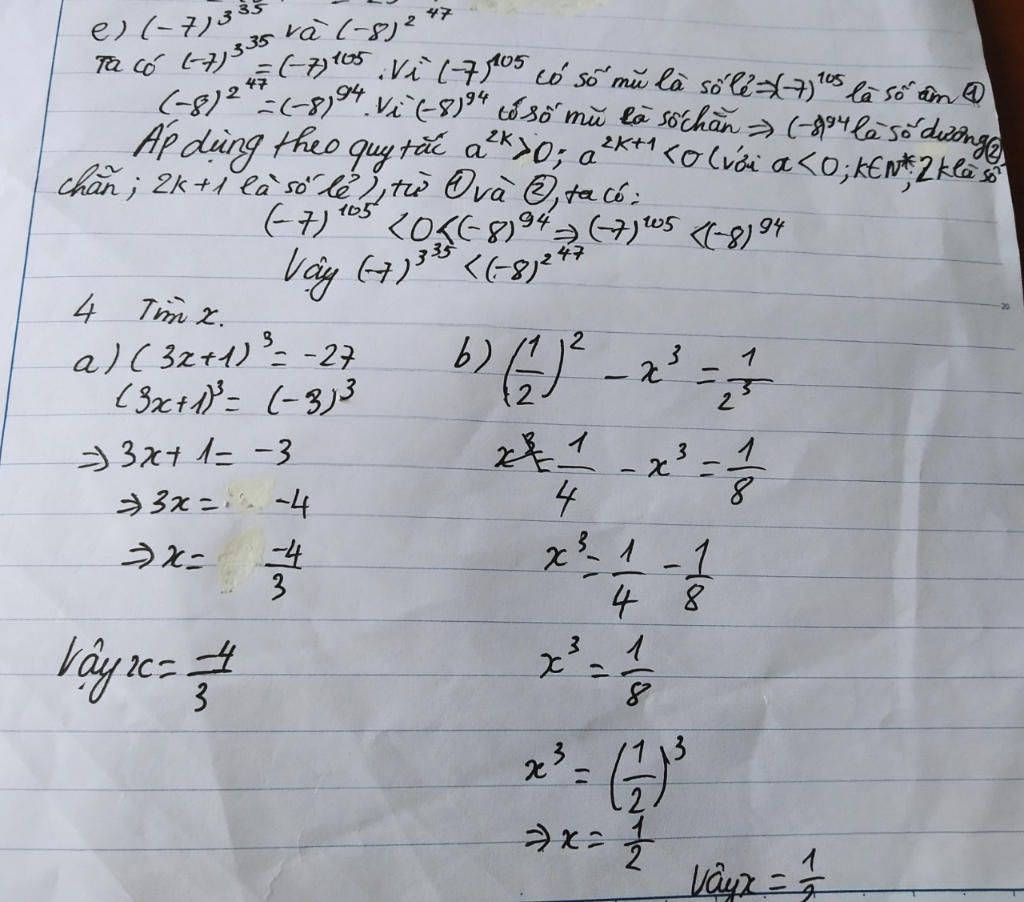 e) (-7)^3^35 và (-8)^2^47
Ta có (-7)^3^35 = (-7)^105. Vì (-7)^105 có số mũ là số lẻ ⇒ (-7)^105 là số âm ①
(-8)^2^47 = (-8)^94. Vì (-8)^94 có số mũ là số chẵn ⇒ (-8)^94 là số dương ②
Áp dụng theo quy tắc a^2k > 0; a^2k+1 < 0 (với a < 0; k∈N*; 2k là số
chẵn; 2k+1 là số lẻ), từ ① và ②, ta có:
(-7)^105 < 0 < (-8)^94 ⇒ (-7)^105 < (-8)^94
Vậy (-7)^3^35 < (-8)^2^47
4 Tìm x.
a) (3x+1)^3 = -27
(3x+1)^3 = (-3)^3
⇒ 3x+1 = -3
⇒ 3x = -4
⇒ x = -4/3
Vậy x = -4/3
b) (1/2)^2 - x^3 = 1/2^3
1/4 - x^3 = 1/8
x^3 = 1/4 - 1/8
x^3 = 1/8
x^3 = (1/2)^3
⇒ x = 1/2
Vậy x = 1/2
20